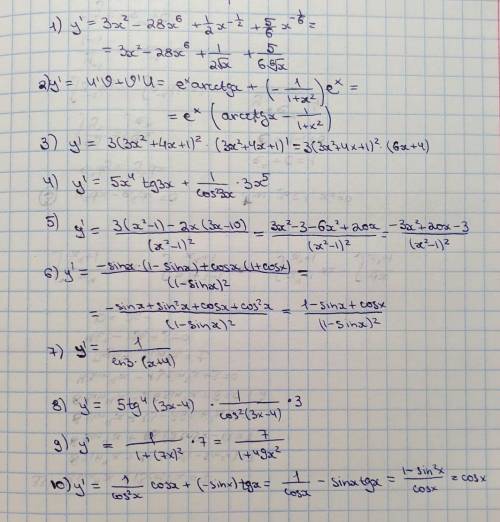 1) y' = 3x² - 28x⁶ + 1/2 x^(-1/2) + 5/6 x^(-1/6) =
= 3x² - 28x⁶ + 1/(2√x) + 5/(6 ⁶√x)
2) y' = u'ϑ + ϑ'u = eˣ arcctgx + (- 1/(1+x²)) eˣ =
= eˣ (arcctgx - 1/(1+x²))
3) y' = 3(3x²+4x+1)² · (3x²+4x+1)' = 3(3x²+4x+1)² · (6x+4)
4) y' = 5x⁴ tg3x + 1/(cos²3x) · 3x⁵
5) y' = (3(x²-1) - 2x(3x-10))/(x²-1)² = (3x²-3-6x²+20x)/(x²-1)² = (-3x²+20x-3)/(x²-1)²
6) y' = (-sinx·(1-sinx)+cosx(1+cosx))/(1-sinx)² =
= (-sinx+sin²x+cosx+cos²x)/(1-sinx)² = (1-sinx+cosx)/(1-sinx)²
7) y' = 1/(ln3·(x+4))
8) y' = 5tg⁴(3x-4) · 1/(cos²(3x-4)) · 3
9) y' = 1/(1+(7x)²) · 7 = 7/(1+49x²)
10) y' = 1/(cos²x) cosx + (-sinx)tgx = 1/cosx - sinxtgx = (1-sin²x)/cosx = cosx